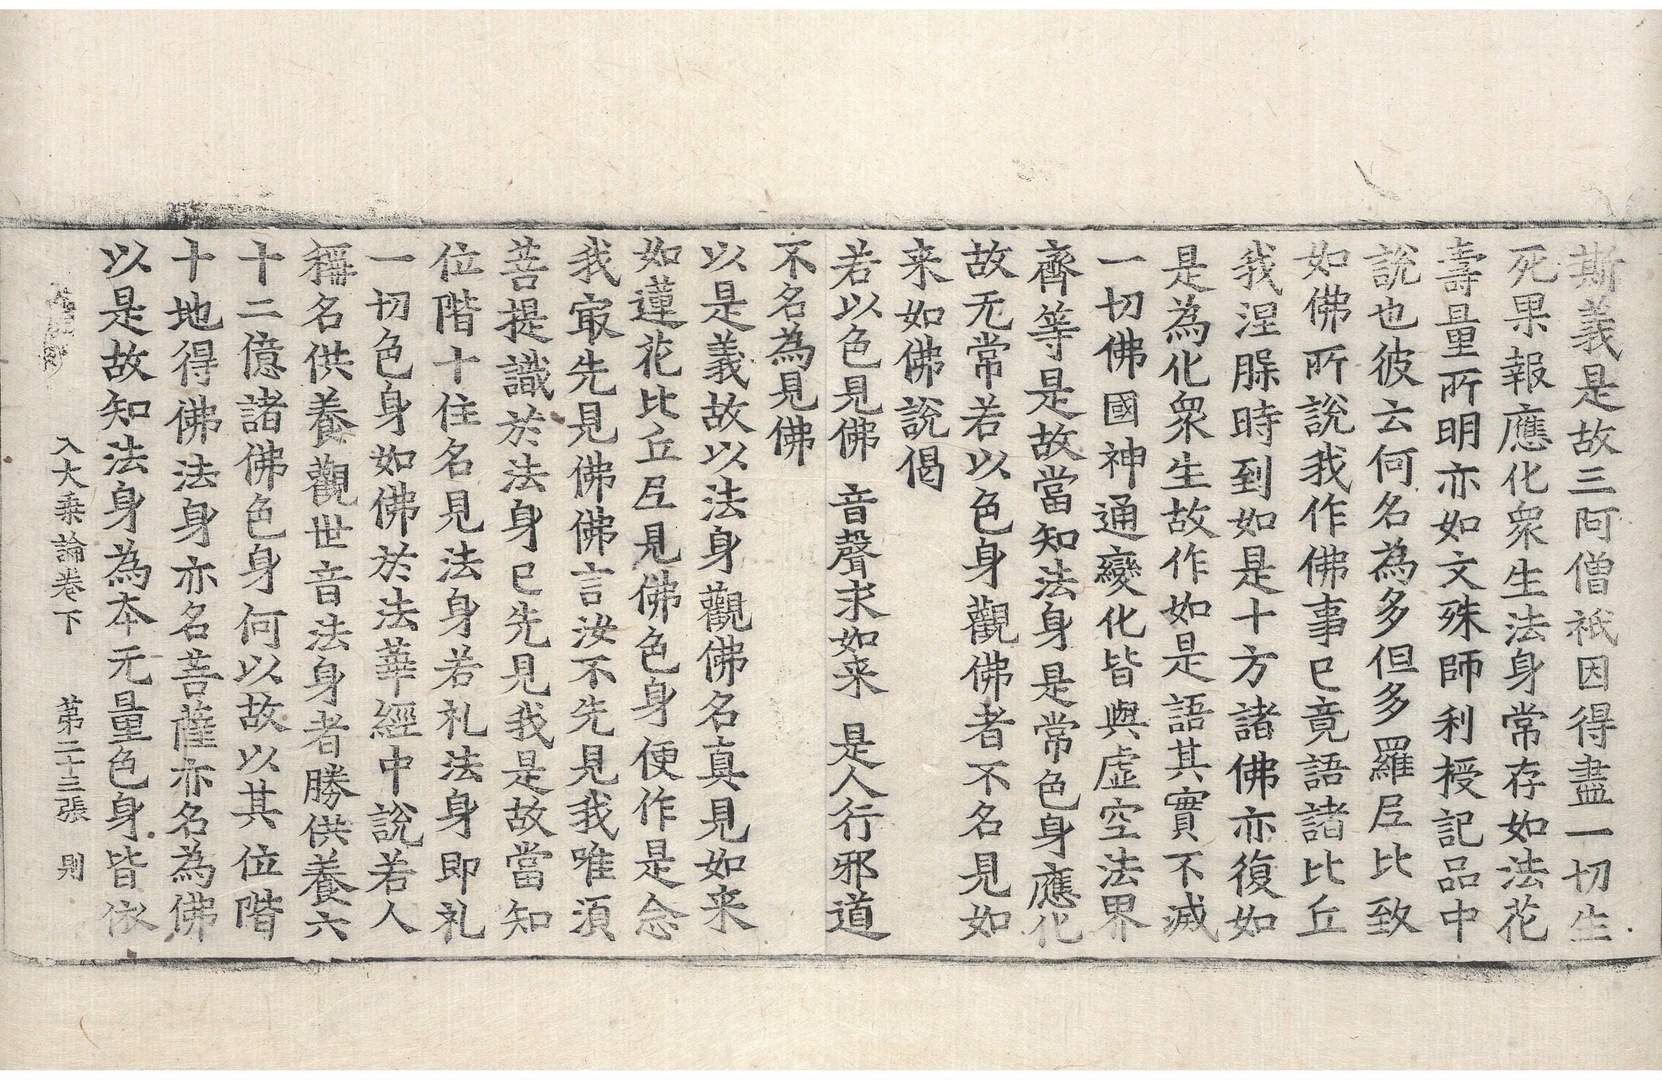 斯義是故三阿僧祇因得盡一切生
死果報應化衆生法身常存如法花
壽量所明亦如文殊師利授記品中
說也彼云何名為多但多羅𡰱比致
如佛所說我作佛事已竟語諸比丘
我涅槃時到如是十方諸佛亦復如
是為化衆生故作如是語其實不滅
一切佛國神通變化皆與虛空法界
齊等是故當知法身是常色身應化
故无常若以色身觀佛者不名見如
来如佛說偈
若以色見佛 音聲求如来 是人行邪道
不名為見佛
以是義故以法身觀佛名真見如来
如蓮花比丘𡰱見佛色身便作是念
我㝡先見佛佛言汝不先見我唯湏
菩提識於法身已先見我是故當知
位階十住名見法身若礼法身即礼
一切色身如佛於法華經中說若人
稱名供養觀世音法身者勝供養六
十二億諸佛色身何以故以其位階
十地得佛法身亦名菩薩亦名為佛
以是故知法身為本无量色身皆依
入大乗論卷下 第二十三張 則